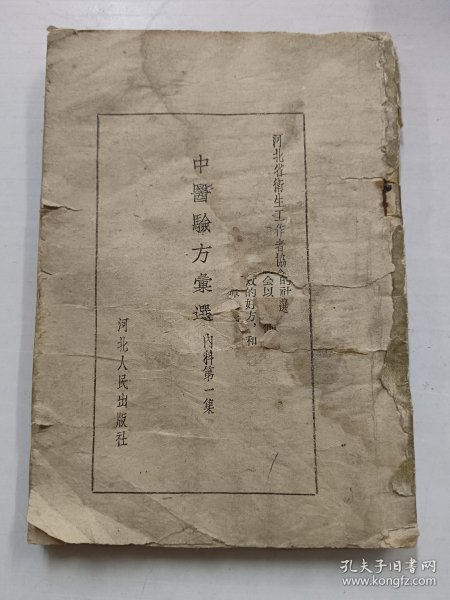 河北省衛生工作者協
的社選
会以
效的好方，和
中醫驗方彙選
內科第一集
河北人民出版社
孔夫子旧书网
www.kongfz.com